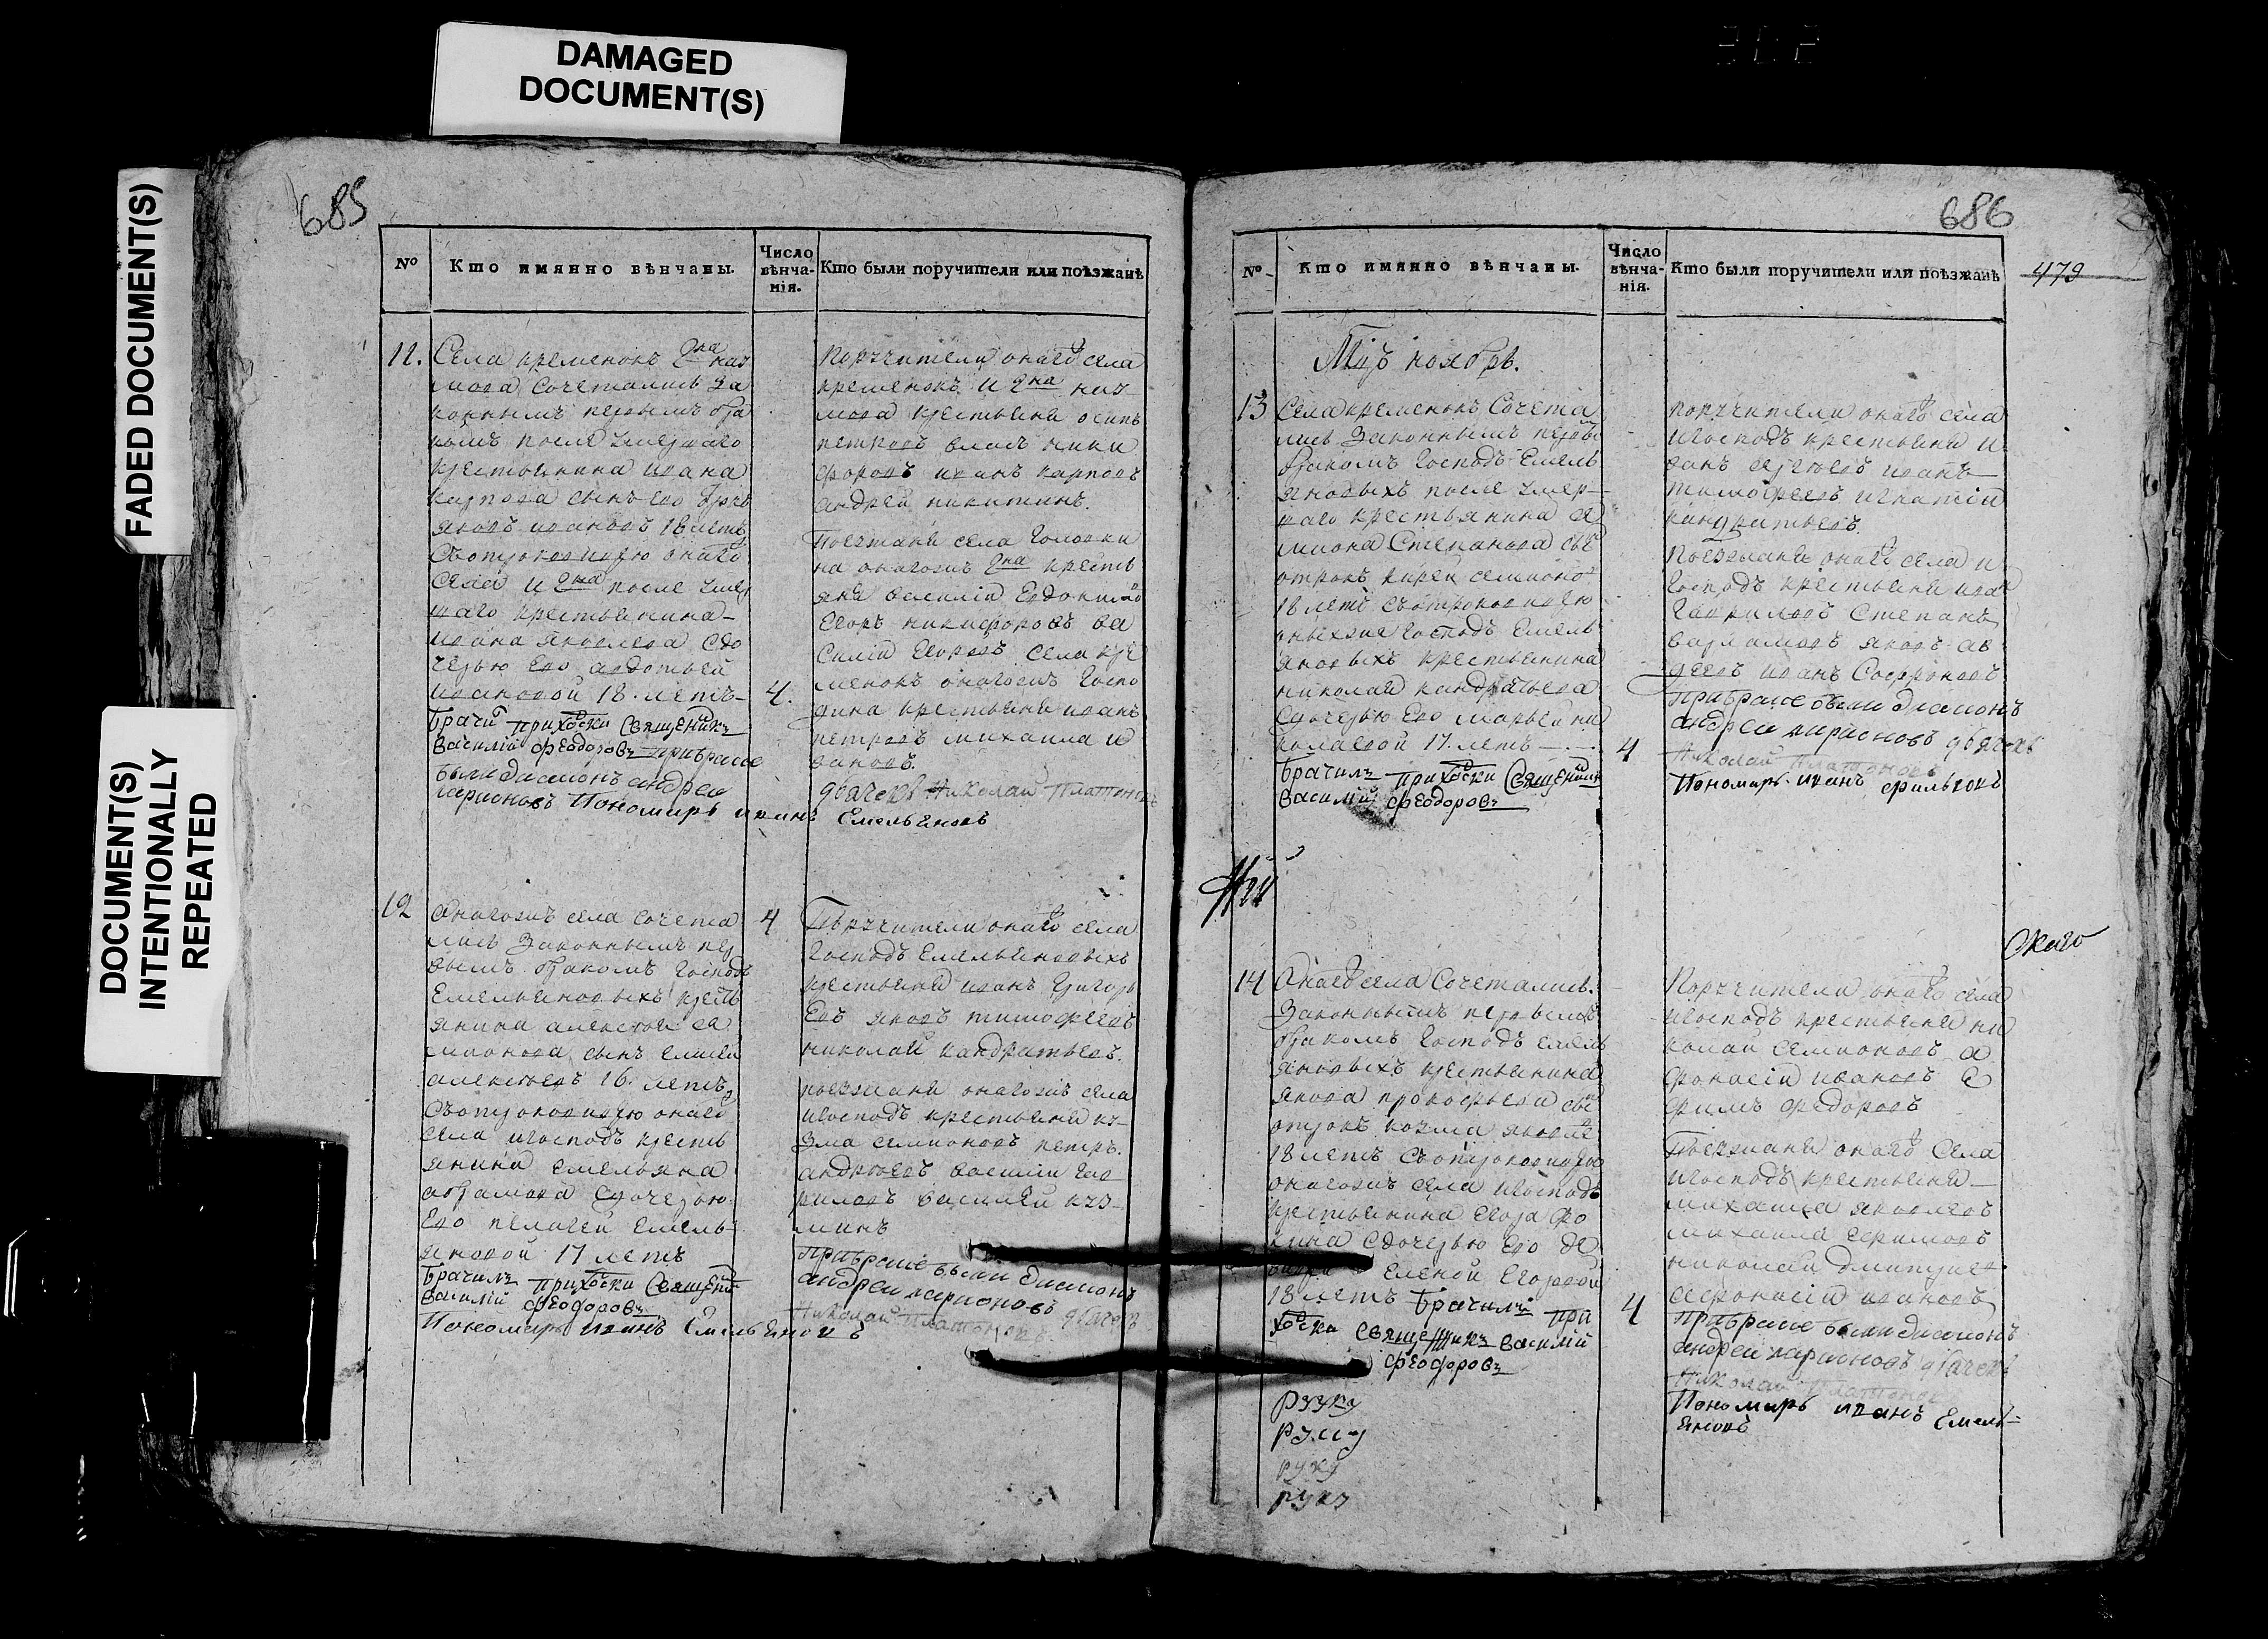 DAMAGED
DOCUMENT(S)
FADED DOCUMENT(S)
DOCUMENT(S)
INTENTIONALLY
REPEATED
685
№
Кто имянно вѣнчаны.
Число
вѣнча-
нія.
Кто были поручители или поѣзжанѣ
11.
Села кременокъ
Сочетались за
коннымъ первымъ бра
комъ после умершаго
крестьянина ивана
карпова сынъ его
яковъ ивановъ 18 летъ
Съотроковицею онаго
села и после умер
шаго крестьянина
ивана яковлева сдо
черью его авдотьей
ивановой 18. летъ
Брачи приходски Священикъ
Василій Феодоровъ приbраке
были дияконъ андреи
ларионовъ Пономарь иванъ Емельяновъ
4.
Поручители онаго села
кременокъ и
крестьяне осипъ
петровъ власъ ники
форовъ иванъ карповъ
андрей никитинъ.
Поезжане села
на онагожъ кресть
яне василій Евдокимо
Егоръ никифоровъ ва
силій Егоровъ села кре
менокъ онагожъ госпо
дина крестьяне иванъ
петровъ михаила и
вановъ.
дьячекъ Николай Платоновъ
12
Онагожъ села сочета
лись Законнымъ пер
вымъ бракомъ Господъ
Емельяновыхъ кресть
янина алексея се
мионова сынъ
алексеевъ 16. летъ
Съотроковицею онаго
села игосподъ кресть
янина емельяна
абрамова сдочерью
Его пелагеи емель
яновой 17 летъ
Брачилъ приходски Священи
Василій Феодоровъ
Пономарь иванъ Емельяновъ
4
Поручители онаго села
Господъ Емельяновыхъ
крестьяне иванъ Григорь
евъ яковъ тимофеевъ
николай кандратьевъ.
поезжане онагожъ села
игосподъ крестьяне ку
зма семионовъ петръ.
андреевъ василіи гав
риловъ василей куз
минъ
приbраке были дияконъ
андреи ларионовъ дьячекъ
Николай Платоновъ
686
479
№
Кто имянно вѣнчаны.
Число
вѣнча-
нія.
Кто были поручители или поѣзжанѣ
Мцъ ноябрь.
13
Села кременокъ Сочета
лись Законнымъ первы
бракомъ Господъ Емель
яновыхъ после умер
шаго крестьянина се
миона Степанова сы
отрокъ кирей семионо
18 летъ съотроковицею
оныхже Господъ Емель
яновыхъ крестьянина
николая кандратьева
Сдочерью Его марьей ни
колаевой 17. летъ
Брачилъ приходски Священикъ
Василій Феодоровъ
4
поручители онаго села
игосподъ крестьяне и
ванъ иванъ
тимофеевъ игнатіи
кандратьевъ.
Поезжане онаго села и
Господъ крестьяне ива
Гавриловъ Степанъ
варламовъ яковъ ав
деевъ иванъ Софроновъ
приbраке были дияконъ
андреи ларионовъ дьячекъ
Николай Платоновъ
Пономарь иванъ
14
Онаго села Сочетались.
Законнымъ первымъ
бракомъ Господъ емель
яновыхъ крестьянина
якова прокофьева сы
отрокъ козма яковле
18 летъ Съотроковицею
онагожъ села игосподъ
крестьянина егора фо
мина Сдочерью Его де
Еленой Егоровой
18 летъ Брачилъ при
ходски Священикъ Василій
Феодоровъ
4
Поручители онаго села
игосподъ крестьяне ни
колаи семионовъ а
фонасій ивановъ е
фимъ федоровъ
Поезжане онаго Села
игосподъ крестьяне
михаила яковлевъ
михаила ефимовъ
николай дмитріе
афонасіи ивановъ
приbраке были дияконъ
андреи ларионовъ дьячекъ
Николай Платоновъ
Пономарь иванъ Емель=
яновъ
руку